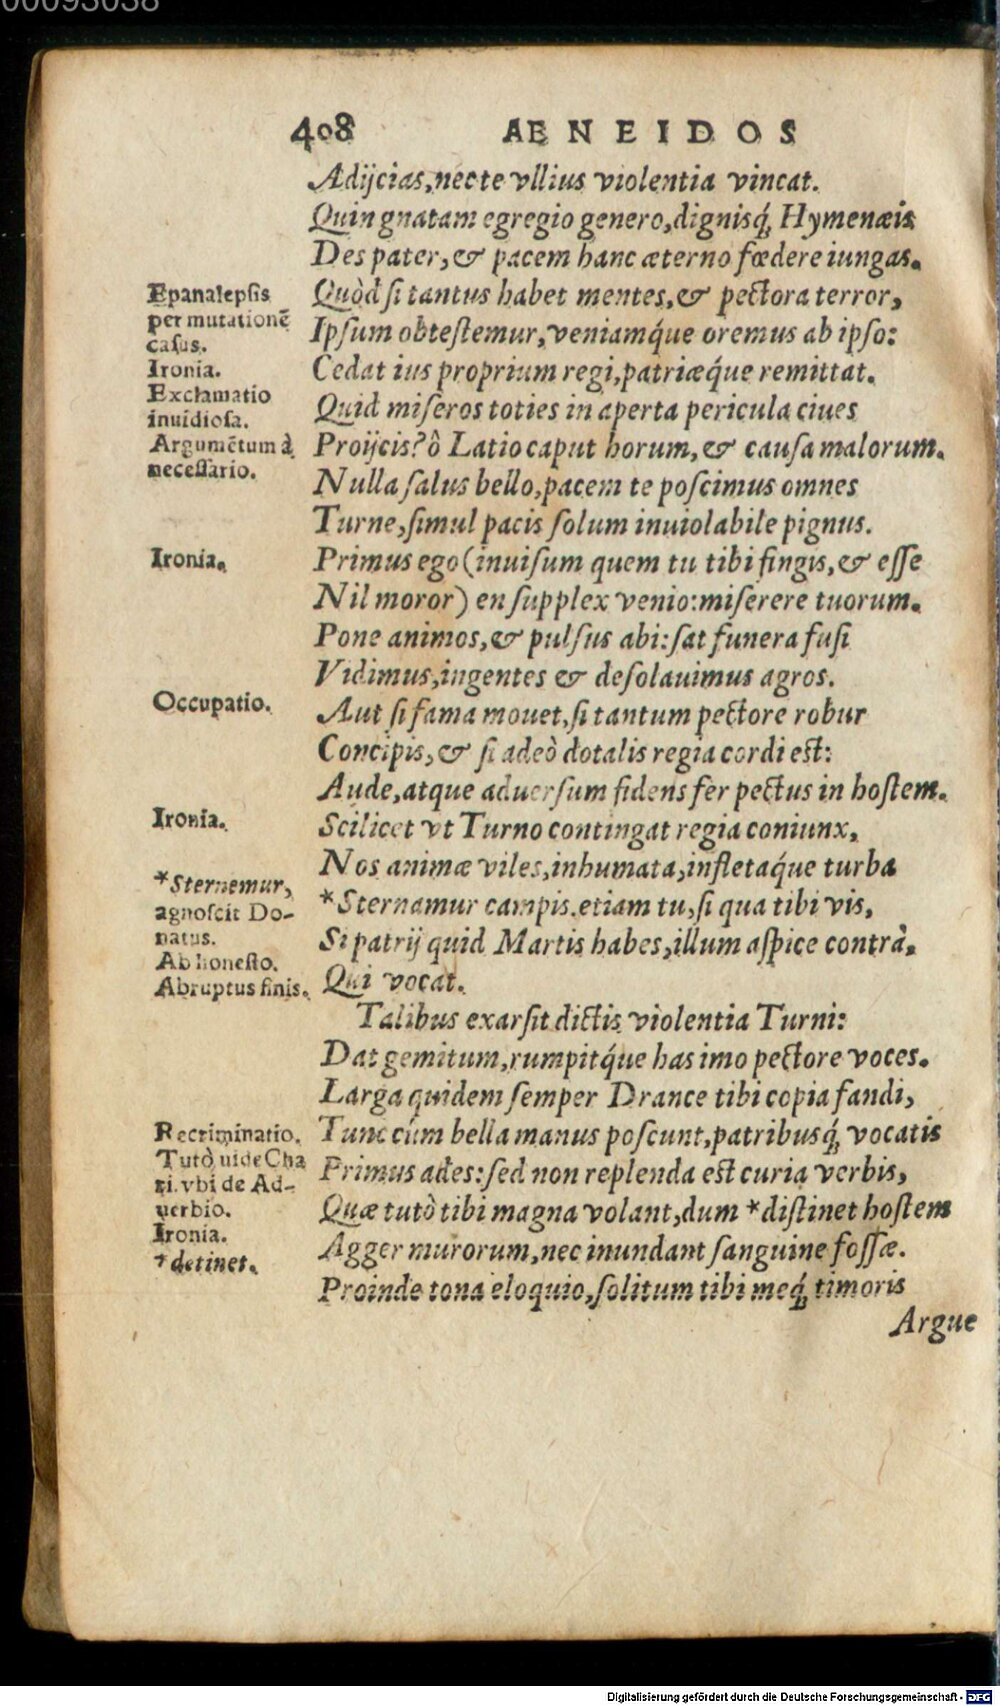 00093038
408 AENEIDOS
Adijcias, nec te vllius violentia vincat.
Quin gnatam egregio genero, dignisq́; Hymenæis
Des pater, & pacem hanc æterno fœdere iungas.
Epanalepsis
per mutationē
casus.
Quòd si tantus habet mentes, & pectora terror,
Ipsum obtestemur, veniamq́ue oremus ab ipso:
Ironia.
Cedat ius proprium regi, patriæq́ue remittat.
Exclamatio
inuidiosa.
Quid miseros toties in aperta pericula ciues
Argumētum à
necessario.
Proijcis? ô Latio caput horum, & causa malorum.
Nulla salus bello, pacem te poscimus omnes
Turne, simul pacis solum inuiolabile pignus.
Ironia.
Primus ego (inuisum quem tu tibi fingis, & esse
Nil moror) en supplex venio: miserere tuorum.
Pone animos, & pulsus abi: sat funera fusi
Vidimus, ingentes & desolauimus agros.
Occupatio.
Aut si fama mouet, si tantum pectore robur
Concipis, & si adeò dotalis regia cordi est:
Aude, atque aduersum fidens fer pectus in hostem.
Ironia.
Scilicet vt Turno contingat regia coniunx,
Nos animæ viles, inhumata, infletaq́ue turba
*Sternemur,
agnoscit Do-
natus.
*Sternamur campis. etiam tu, si qua tibi vis,
Si patrij quid Martis habes, illum aspice contrà,
Ab honesto.
Abruptus finis.
Qui vocat.
Talibus exarsit dictis violentia Turni:
Dat gemitum, rumpitq́ue has imo pectore voces.
Larga quidem semper Drance tibi copia fandi,
Recriminatio.
Tunc cúm bella manus poscunt, patribusq́; vocatis
Tutò uide Cha
ri. vbi de Ad-
uerbio.
Primus ades: sed non replenda est curia verbis,
Quæ tutò tibi magna volant, dum *distinet hostem
Ironia.
*detinet.
Agger murorum, nec inundant sanguine fossæ.
Proinde tona eloquio, solitum tibi meq́; timoris
Argue
Digitalisierung gefördert durch die Deutsche Forschungsgemeinschaft - DFG